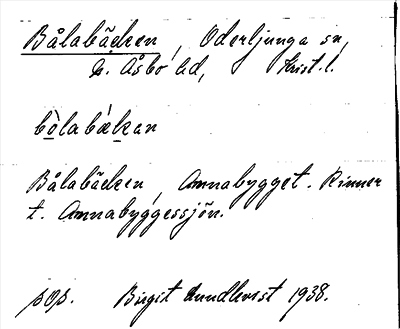 Bålabäcken, Oderljunga sn,
N. Åsbo hd, Krist. l.
bòlabǽkan
Bålabäcken, Amnabygget. Rinner
t. Amnabyggessjön.
pOp. Birgit Lundkvist 1938.